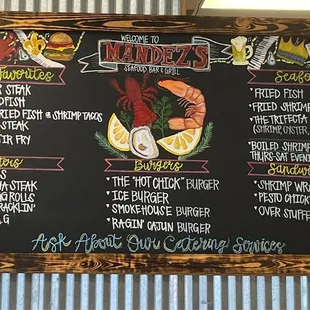 WELCOME TO
MANDEZ'S
SEAFOOD BAR & GRILL
Favorites
STEAK
FISH
FRIED FISH OR SHRIMP TACOS
STEAK
STIR FRY
STEAK
ROLLS
CRACKLIN'
Burgers
• THE "HOT CHICK" BURGER
• ICE BURGER
• SMOKEHOUSE BURGER
• RAGIN' CAJUN BURGER
Seafood
• FRIED FISH
• FRIED SHRIMP
• THE TRIFECTA
(SHRIMP, OYSTER,
BOILED SHRIMP
THURS-SAT
• SHRIMP
• PESTO
• OVER STUFFE
Ask About Our Catering Services